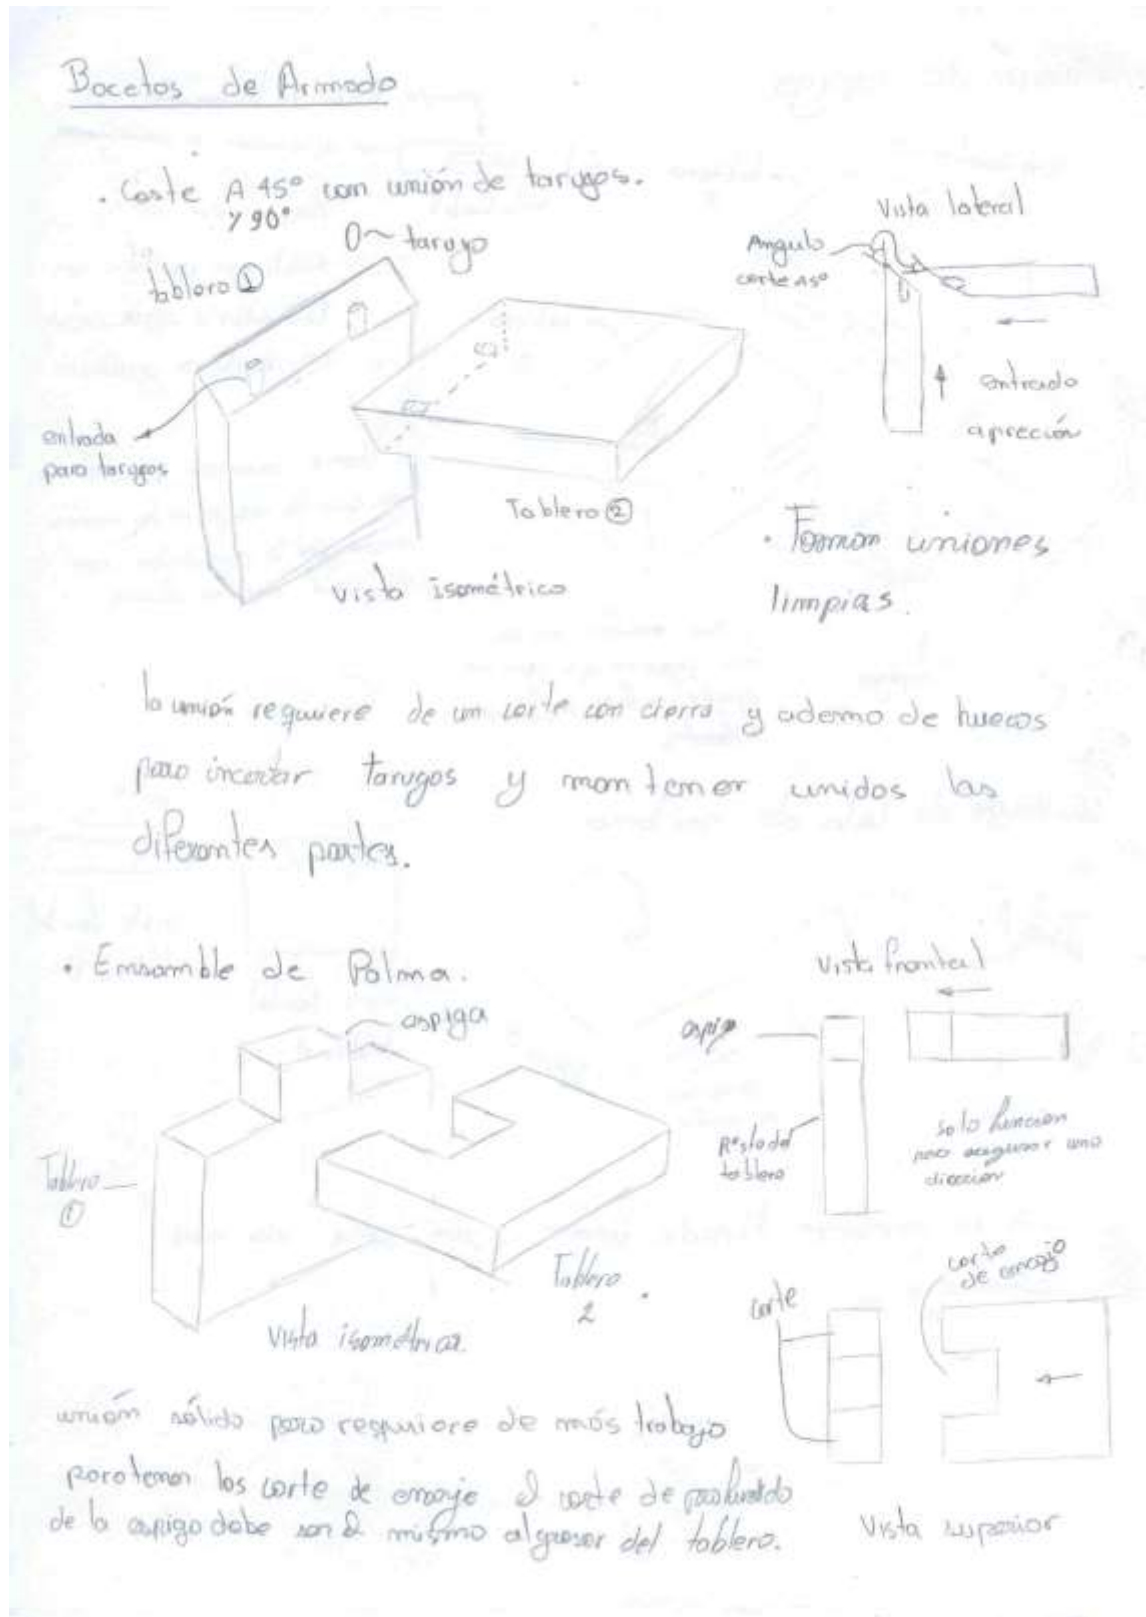 Bocetos de Armado
· Corte A 45° con unión de tarugos.
y 90°
tarugo
tablero ①
entrada
para tarugos
Tablero ②
Vista isométrica
Vista lateral
Angulo
corte 45°
entrada
a preción
· Forman uniones
limpias.
la unión requiere de un corte con cierra y adema de huecos
para incertar tarugos y mantener unidos las
diferentes partes.
· Ensamble de Palma.
aspiga
Tablero
①
Tablero
2
Vista isométrica
Vista frontal
aspiga
Resto del
tablero
solo funcion
para asegurar una
dirección
corte
corte
de encaje
Vista superior
unión sólida pero requiere de más trabajo
para tener los corte de encaje el corte de profundida
de la aspiga debe ser el mismo al grosor del tablero.